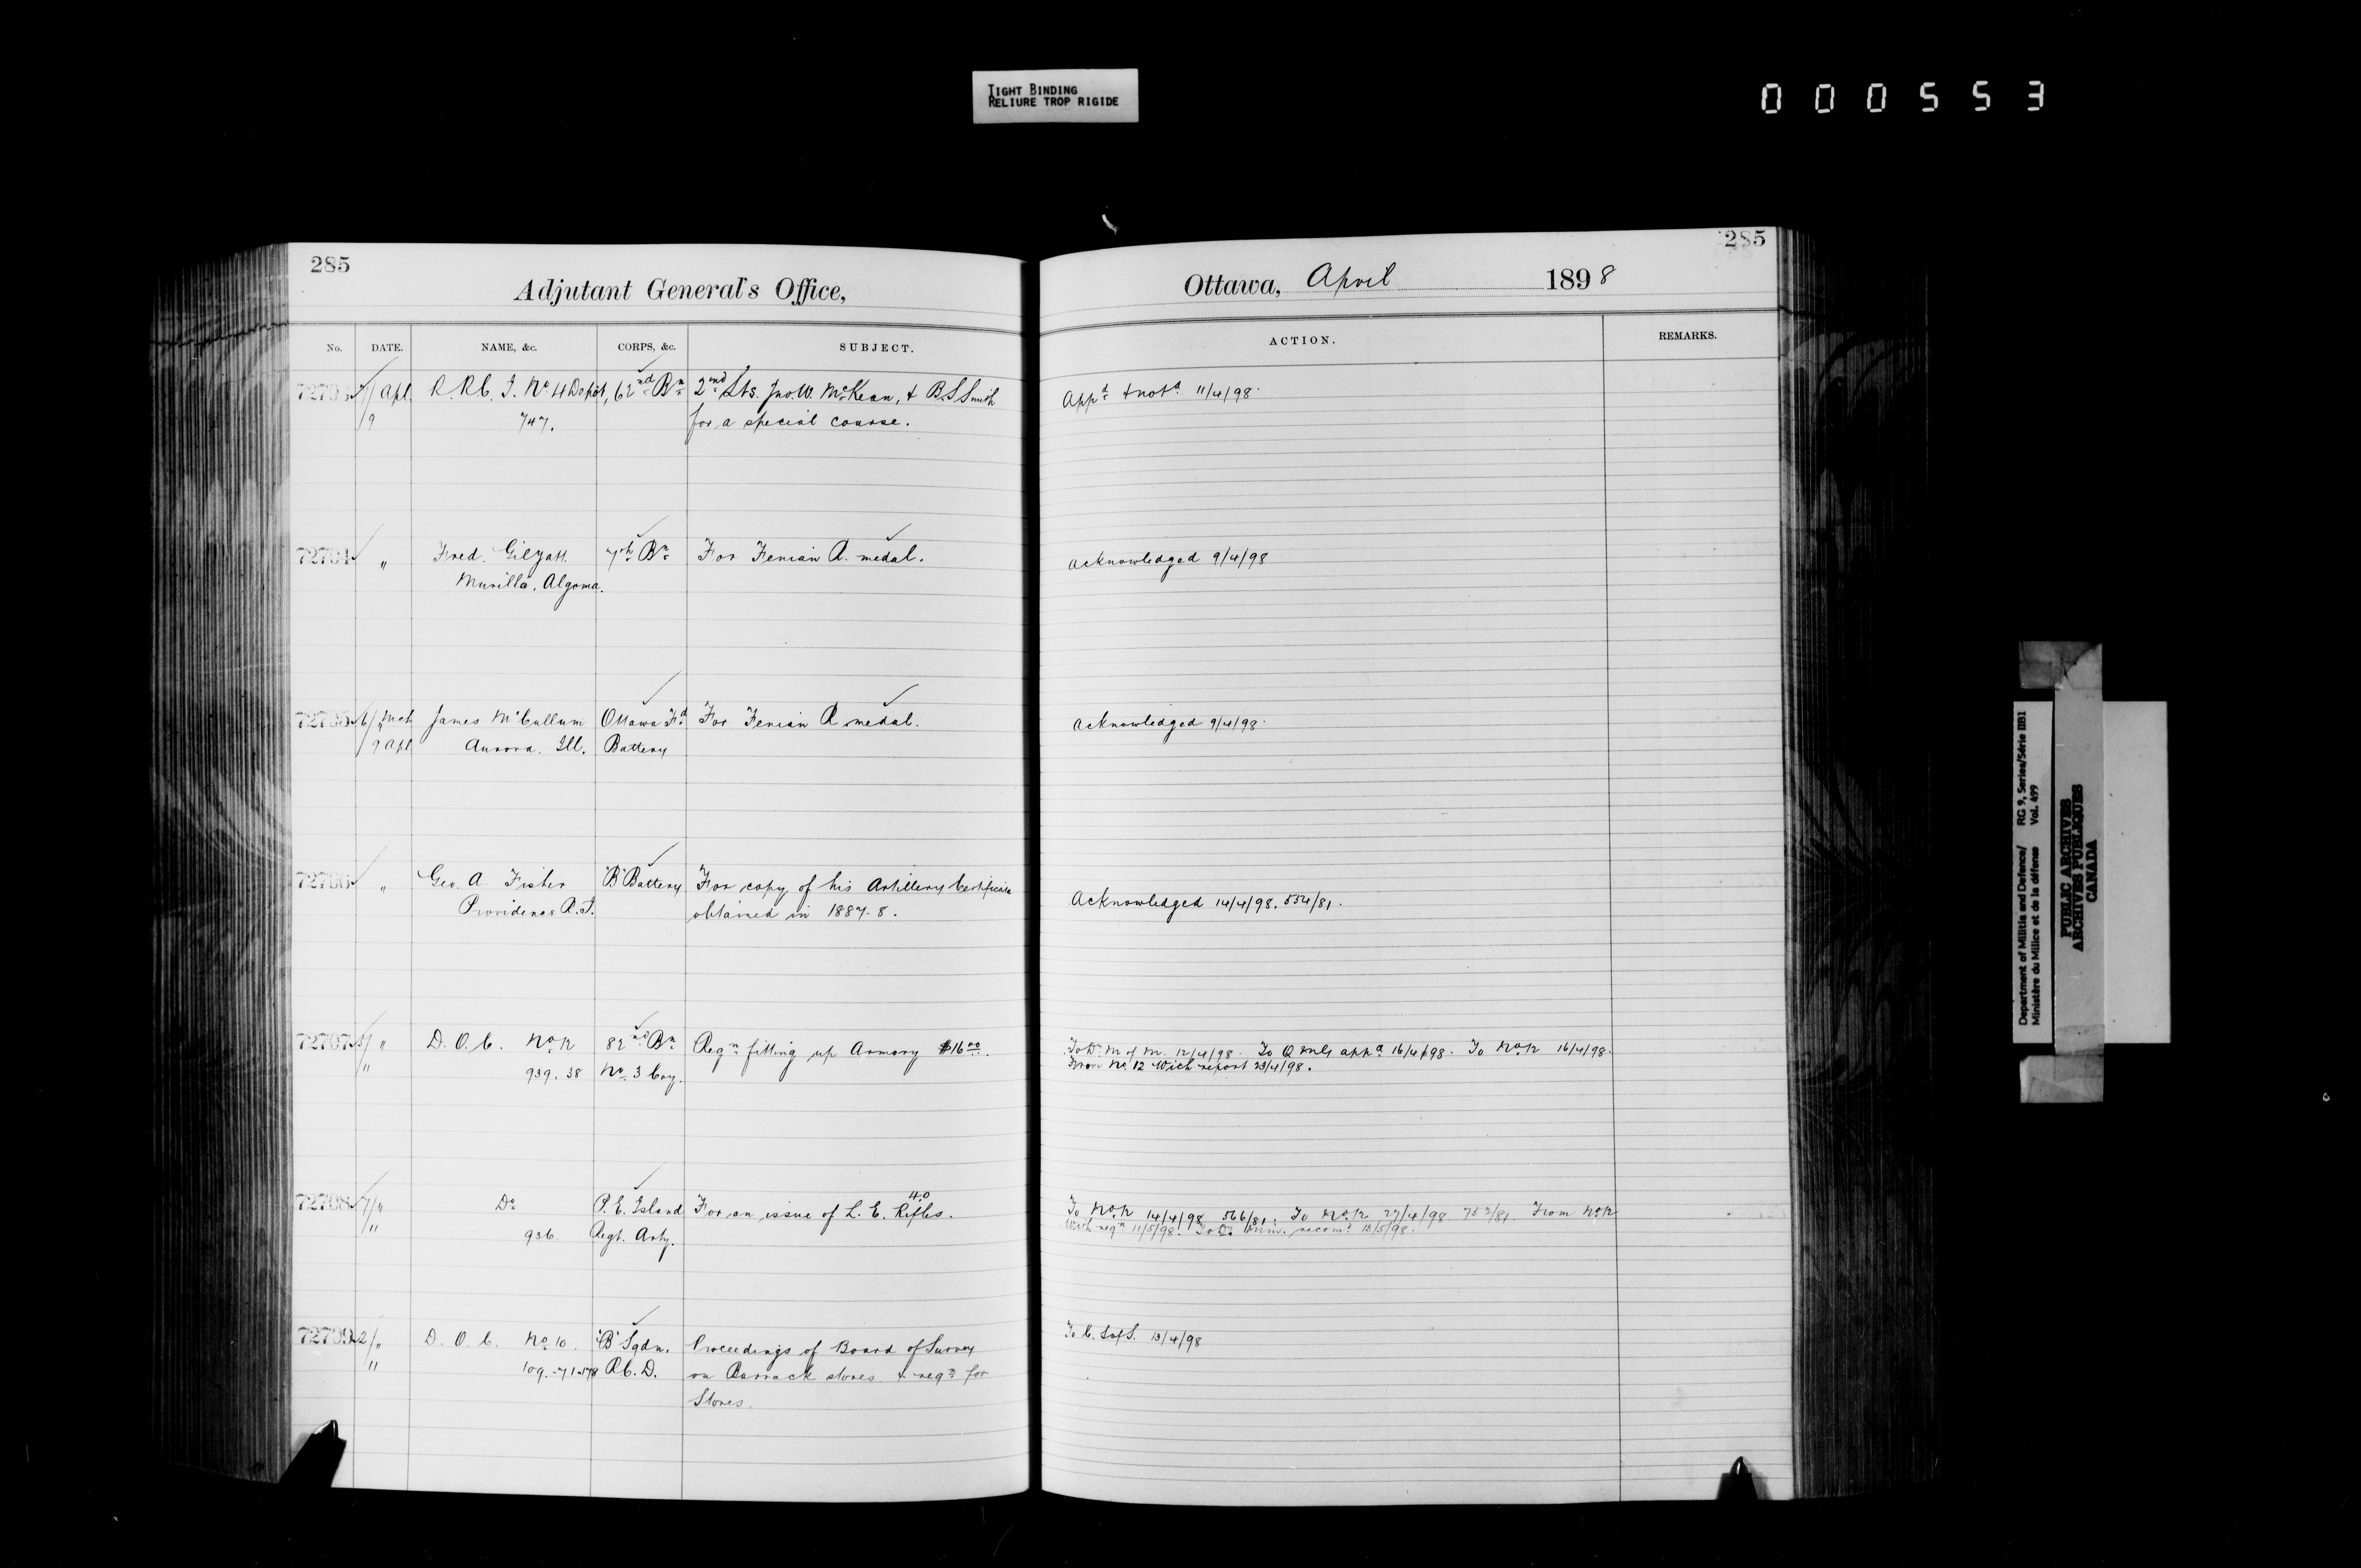 TIGHT BINDING
RELIURE TROP RIGIDE
000553
285
285
Adjutant General's Office,
Ottawa, April 1898
No. DATE. NAME, &c. CORPS, &c. SUBJECT. ACTION. REMARKS.
72703 7/ Apl. R.R.C.I. No 4 Depot, 62nd Bn 2nd Lts. Jno. W. McKean, & B.S Smith Appd & notd 11/4/98.
/9 747. for a special course.
72704 " Fred. Gilyatt. 7th Bn For Fenian R. medal. Acknowledged 9/4/98
Murillo, Algoma.
72705 6/ Mch James McCullum Ottawa Fd For Fenian R medal. Acknowledged 9/4/98.
/9 Apl Aurora. Ill. Battery
72706 " Geo. A. Fisher "B" Battery For copy of his Artillery Certificate
Providence R.I. obtained in 1887-8. Acknowledged 14/4/98. 554/81.
72707 5/ " D.O.C. No 12 82nd Bn Reqn fitting up Armory $16 00. To D. M of M. 12/4/98. To Q M G appd 16/4/98. To No 12 16/4/98.
/" 939. 38 No. 3 Coy. From No 12 with report 23/4/98.
72708 7/ " Do P.E. Island For an issue of L.E. 40 Rifles. To No 12 14/4/98 566/81. To No 12 27/4/98 752/81. From No 12
/" 936. Regt. Arty. With reqn 11/5/98. To D. Min. recomd 13/5/98.
72709 2/ " D.O.C. No 10. "B" Sqdn. Proceedings of Board of Survey To C. S of S. 13/4/98
" 109.-71-178 R.C.D. on Barrack stores & reqn for
Stores.
Department of Militia and Defence/ RG 9, Series/Série IIB1
Ministère du Milice et de la défense Vol. 499
PUBLIC ARCHIVES
ARCHIVES PUBLIQUES
CANADA